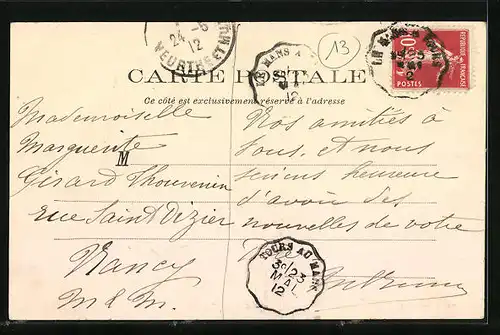 24 - 5
12
MEURTHE ET M
LE MANS A
12
13
LE MANS A TOURS
23
12
10
REPUBLIQUE FRANÇAISE
POSTES
CARTE POSTALE
Ce côté est exclusivement réservé à l'adresse
Mademoiselle
Marguerite
M
Girard Thouvenin
rue Saint Dizier
Nancy
M & M.
Nos amitiés à
tous. Nous
serions heureux
d'avoir des
nouvelles de votre
TOURS AU MANS
3e/23
MAI
12